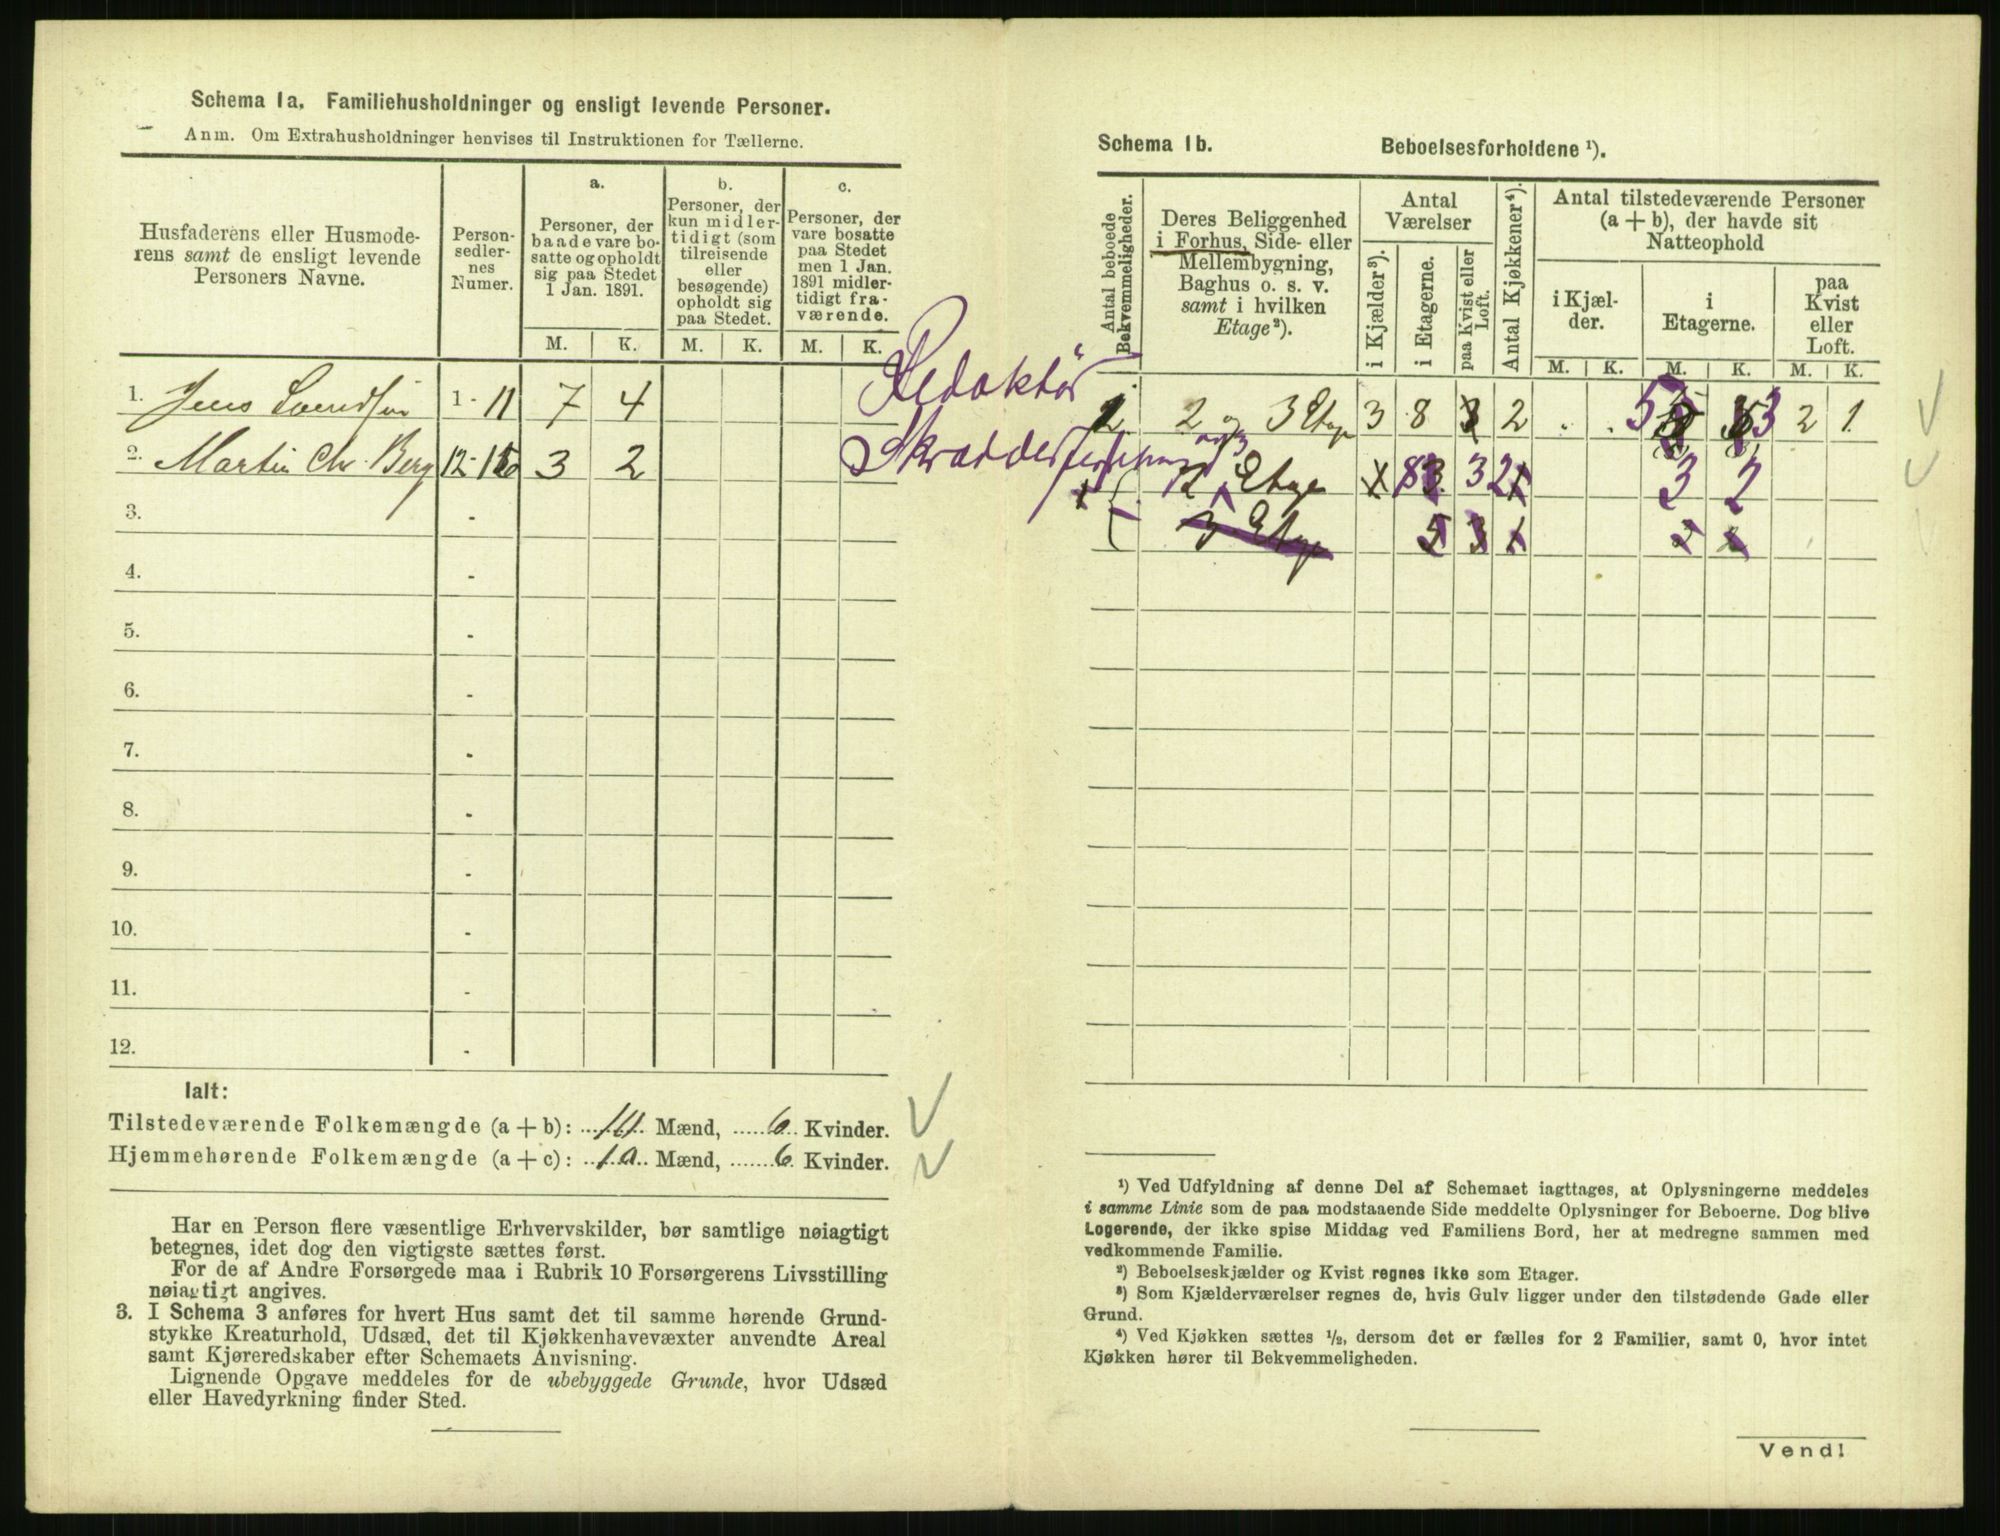 Schema 1a. Familiehusholdninger og ensligt levende Personer.
Anm. Om Extrahusholdninger henvises til Instruktionen for Tællerne.
Husfaderens eller Husmode-
rens samt de ensligt levende
Personers Navne.
Person-
sedler-
nes
Numer.
a.
Personer, der
baade vare bo-
satte og opholdt
sig paa Stedet
1 Jan. 1891.
b.
Personer, der
kun midler-
tidigt (som
tilreisende
eller
besøgende)
opholdt sig
paa Stedet.
c.
Personer, der
vare bosatte
paa Stedet
men 1 Jan.
1891 midler-
tidigt fra-
værende.
M. K. M. K. M. K.
1. Jens 1 - 11 7 4 Redaktør
2. Martin Chr. Berg 12- 3 2
3. -
4. -
5. -
6. -
7. -
8. -
9. -
10. -
11. -
12. -
Ialt:
Tilstedeværende Folkemængde (a + b): Mænd, 6 Kvinder.
Hjemmehørende Folkemængde (a + c): 10 Mænd, 6 Kvinder.
Har en Person flere væsentlige Erhvervskilder, bør samtlige nøiagtigt
betegnes, idet dog den vigtigste sættes først.
For de af Andre Forsørgede maa i Rubrik 10 Forsørgerens Livsstilling
nøiagtigt angives.
3. I Schema 3 anføres for hvert Hus samt det til samme hørende Grund-
stykke Kreaturhold, Udsæd, det til Kjøkkenhavevæxter anvendte Areal
samt Kjøreredskaber efter Schemaets Anvisning.
Lignende Opgave meddeles for de ubebyggede Grunde, hvor Udsæd
eller Havedyrkning finder Sted.
Schema 1b. Beboelsesforholdene ¹).
Antal beboede
Bekvemmeligheder.
Deres Beliggenhed
i Forhus, Side- eller
Mellembygning,
Baghus o. s. v.
samt i hvilken
Etage²).
Antal
Værelser
i Kjælder³).
i Etagerne.
paa Kvist eller
Loft.
Antal Kjøkkener⁴).
Antal tilstedeværende Personer
(a + b), der havde sit
Natteophold
i Kjæl-
der.
i
Etagerne.
paa
Kvist
eller
Loft.
M. K. M. K. M. K.
2 og 3 Etage 3 8 2 5 3 2 1
2 Etage 3 2 3 2
3 Etage
¹) Ved Udfyldning af denne Del af Schemaet iagttages, at Oplysningerne meddeles
i samme Linie som de paa modstaaende Side meddelte Oplysninger for Beboerne. Dog blive
Logerende, der ikke spise Middag ved Familiens Bord, her at medregne sammen med
vedkommende Familie.
²) Beboelseskjælder og Kvist regnes ikke som Etager.
³) Som Kjælderværelser regnes de, hvis Gulv ligger under den tilstødende Gade eller
Grund.
⁴) Ved Kjøkken sættes ½, dersom det er fælles for 2 Familier, samt 0, hvor intet
Kjøkken hører til Bekvemmeligheden.
Vend!